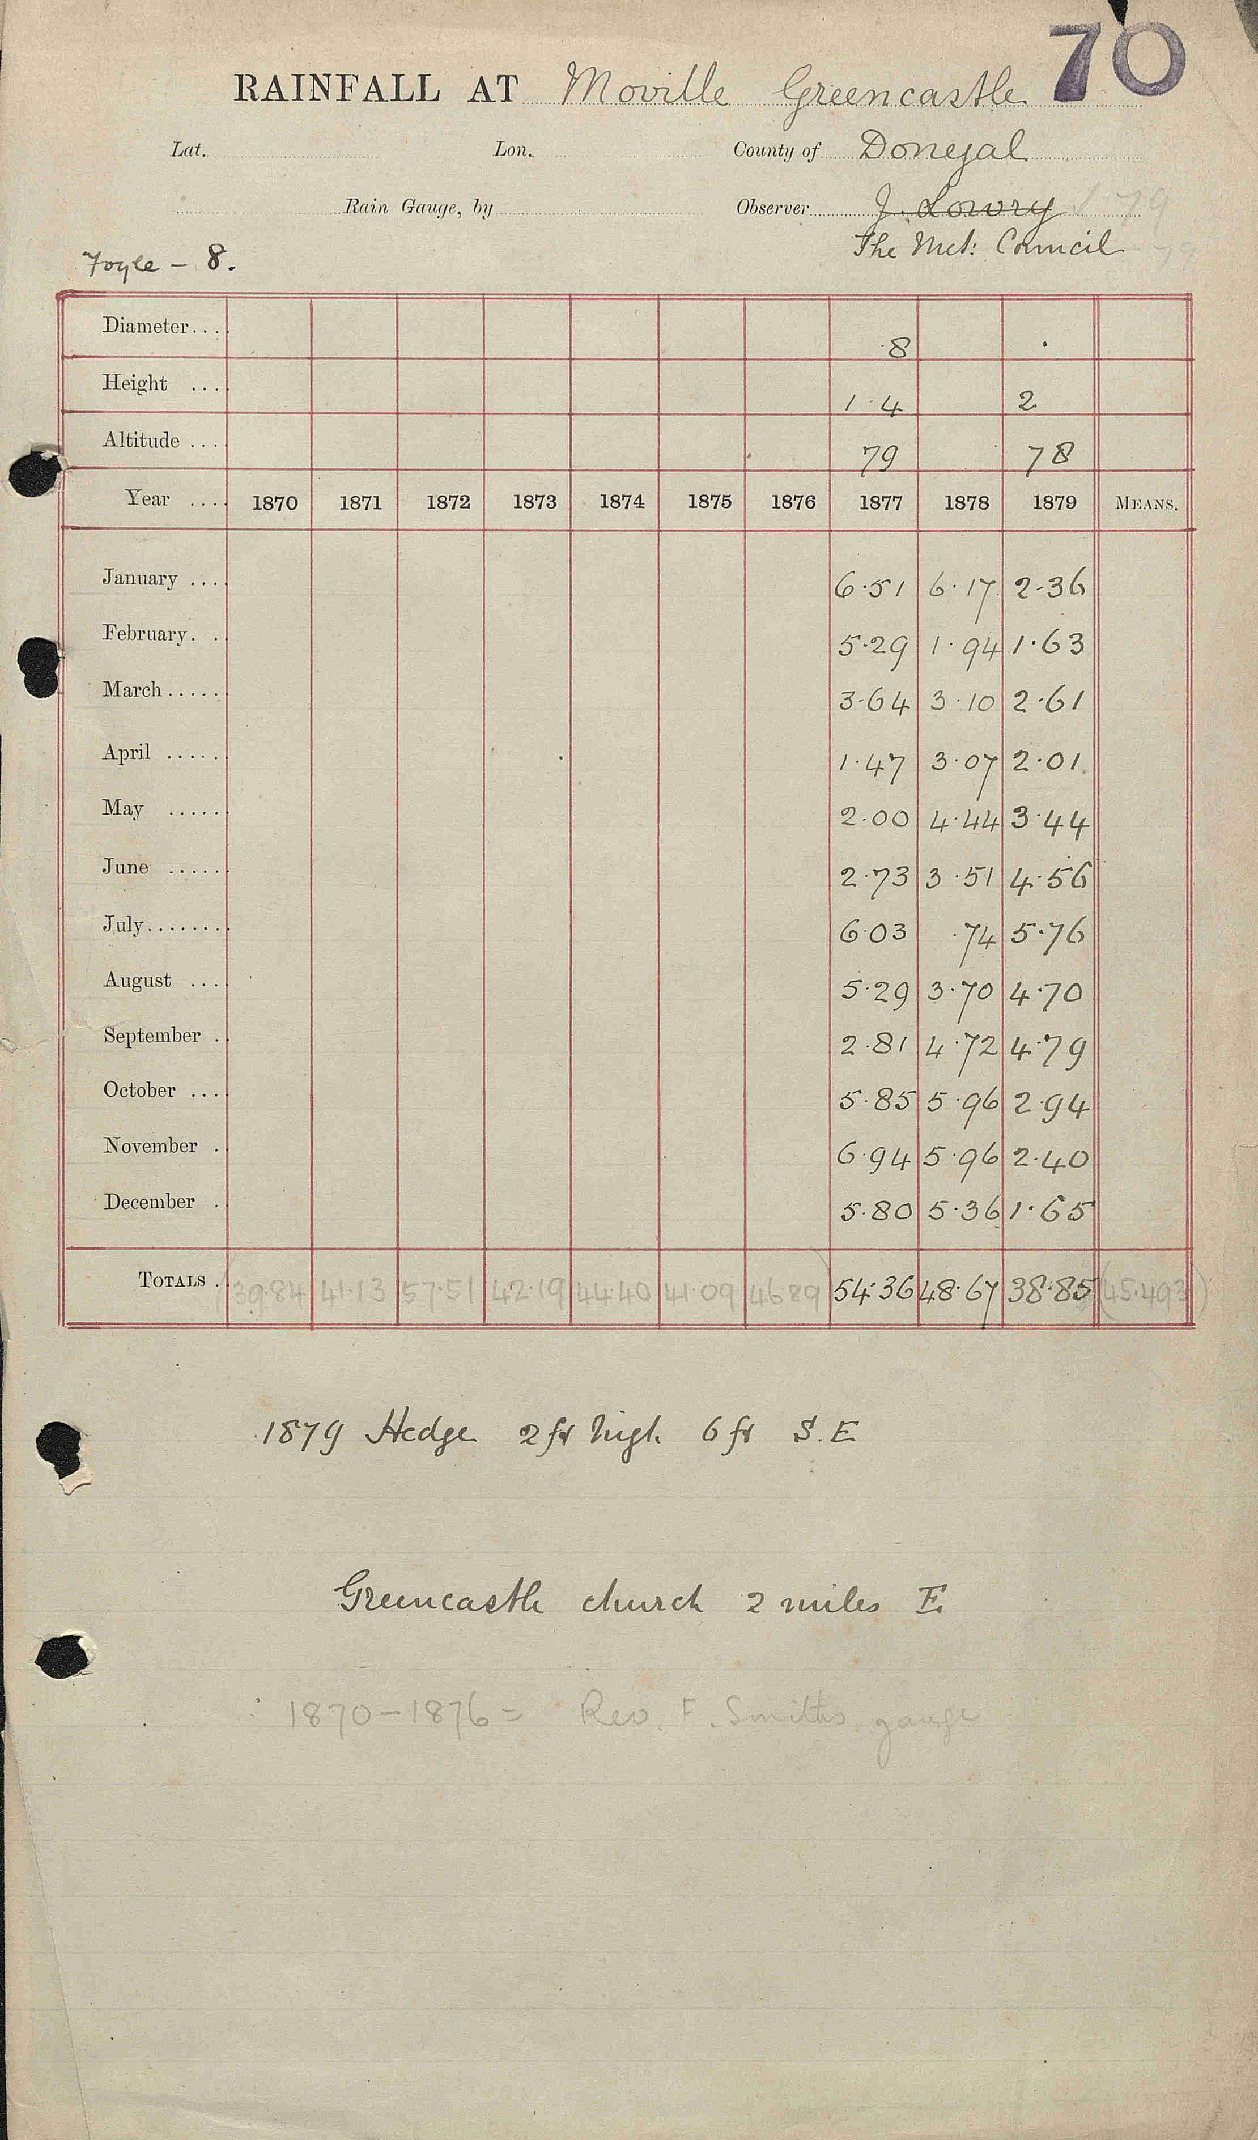 70
RAINFALL AT Moville Greencastle
Lat. Lon. County of Donegal
Rain Gauge, by Observer J. Lowry 79
The Met: Council 79
Foyle - 8.
Diameter... 8 .
Height ... 1.4 2
Altitude .... 79 78
Year .... 1870 1871 1872 1873 1874 1875 1876 1877 1878 1879 MEANS.
January .... 6.51 6.17 2.36
February. . 5.29 1.94 1.63
March..... 3.64 3.10 2.61
April ..... 1.47 3.07 2.01
May ..... 2.00 4.44 3.44
June ..... 2.73 3.51 4.56
July........ 6.03 .74 5.76
August .... 5.29 3.70 4.70
September . 2.81 4.72 4.79
October .... 5.85 5.96 2.94
November . 6.94 5.96 2.40
December . 5.80 5.36 1.65
TOTALS . (39.84 41.13 57.51 42.19 44.40 41.09 46.89) 54.36 48.67 38.85 (45.493)
1879 Hedge 2 ft high 6 ft S.E
Greencastle church 2 miles E.
1870-1876 = Rev. F. Smiths gauge